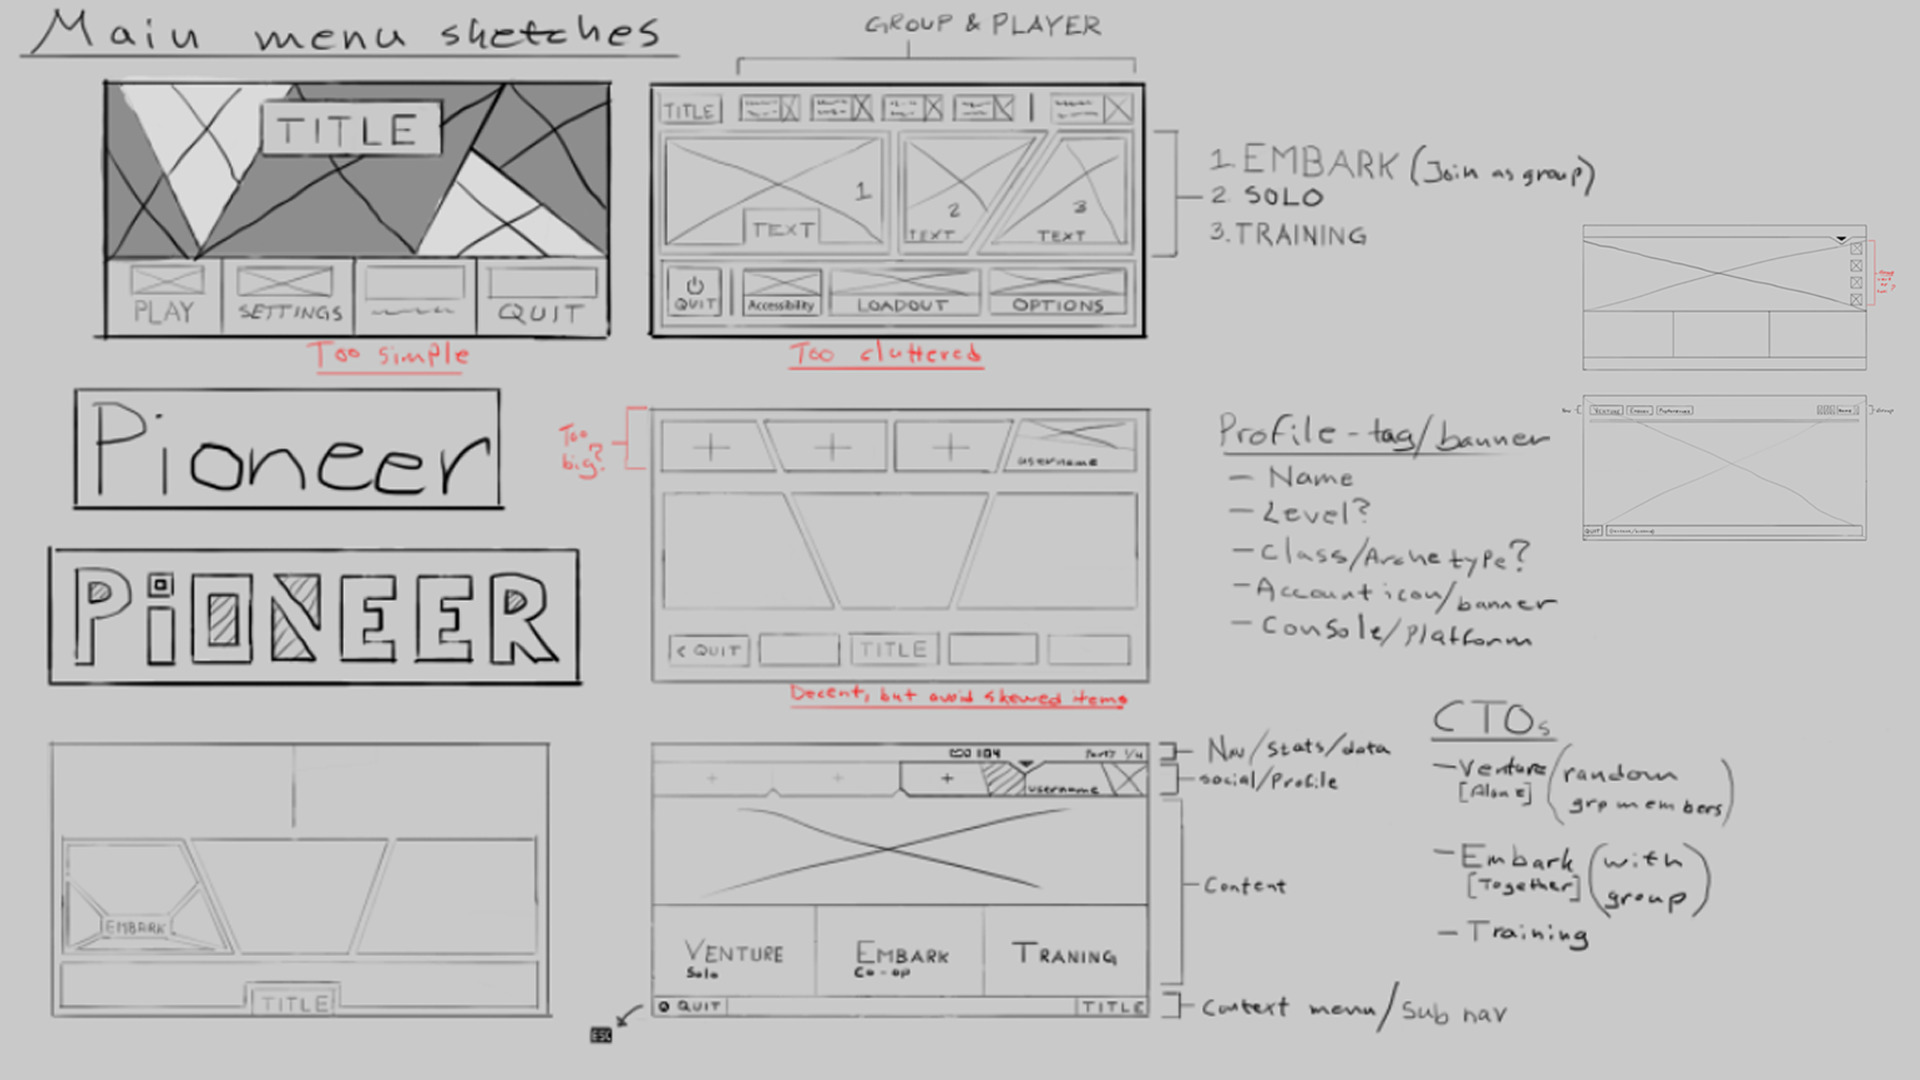 Main menu sketches
GROUP & PLAYER
TITLE
PLAY
SETTINGS
QUIT
Too simple
TITLE
1
TEXT
2
TEXT
3
TEXT
QUIT
Accessibility
LOADOUT
OPTIONS
Too cluttered
1. EMBARK (Join as group)
2. SOLO
3. TRAINING
Pioneer
PiONEER
Too
big?
+
+
+
username
< QUIT
TITLE
Decent, but avoid skewed items
Profile-tag/banner
- Name
- Level?
- Class/Archetype?
- Account icon/banner
- Console/Platform
QUIT
EMBARK
TITLE
104
Party 1/4
+
+
+
username
VENTURE
Solo
EMBARK
Co-op
TRANING
QUIT
TITLE
ESC
Nav/stats/data
social/Profile
Content
Context menu/Sub nav
CTOs
- Venture (random
[Alone] grp members)
- Embark (with
[Together] group)
- Training